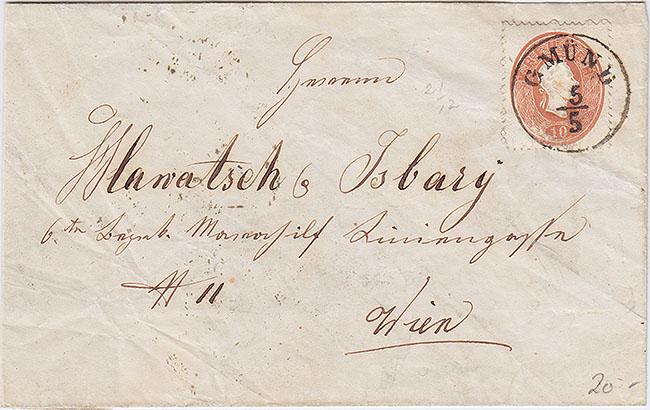 GMÜND
5/5
10
Herrn
21/12
Hlawatsch & Isbary
6ten Bezirk. Mariahilf Liniengasse
# 11
Wien
20.-